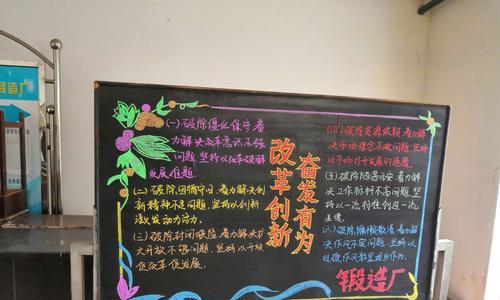 造厂
改革创新
奋发有为
(一)破除僵化保守着
力解决改革意识不强
问题,坚持以改革破解
发展难题
(二)破除因循守旧,着力解决创
新精神不足问题,坚持以创新
激发动力活力。
(三)破除封闭狭隘,着力解决扩
大开放不够问题,坚持以开放
促改革促发展.
(四)破除资源依赖,着力解
决市场理念不强问题,坚持
以市场
(五)破除随遇而安,着力解
决工作标准不高问题,坚持
以一流标准创一流
业绩
(六)破除慵懒散漫,着力解
决作风不实问题,坚持以
过硬作风彰显担当作为。
锻造厂